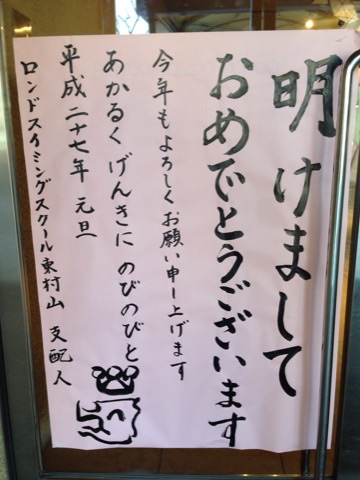 明けまして
おめでとうございます
今年もよろしくお願い申し上げます
あかるくげんきにのびのびと
平成二十七年 元旦
ロンドスイミングスクール東村山 支配人